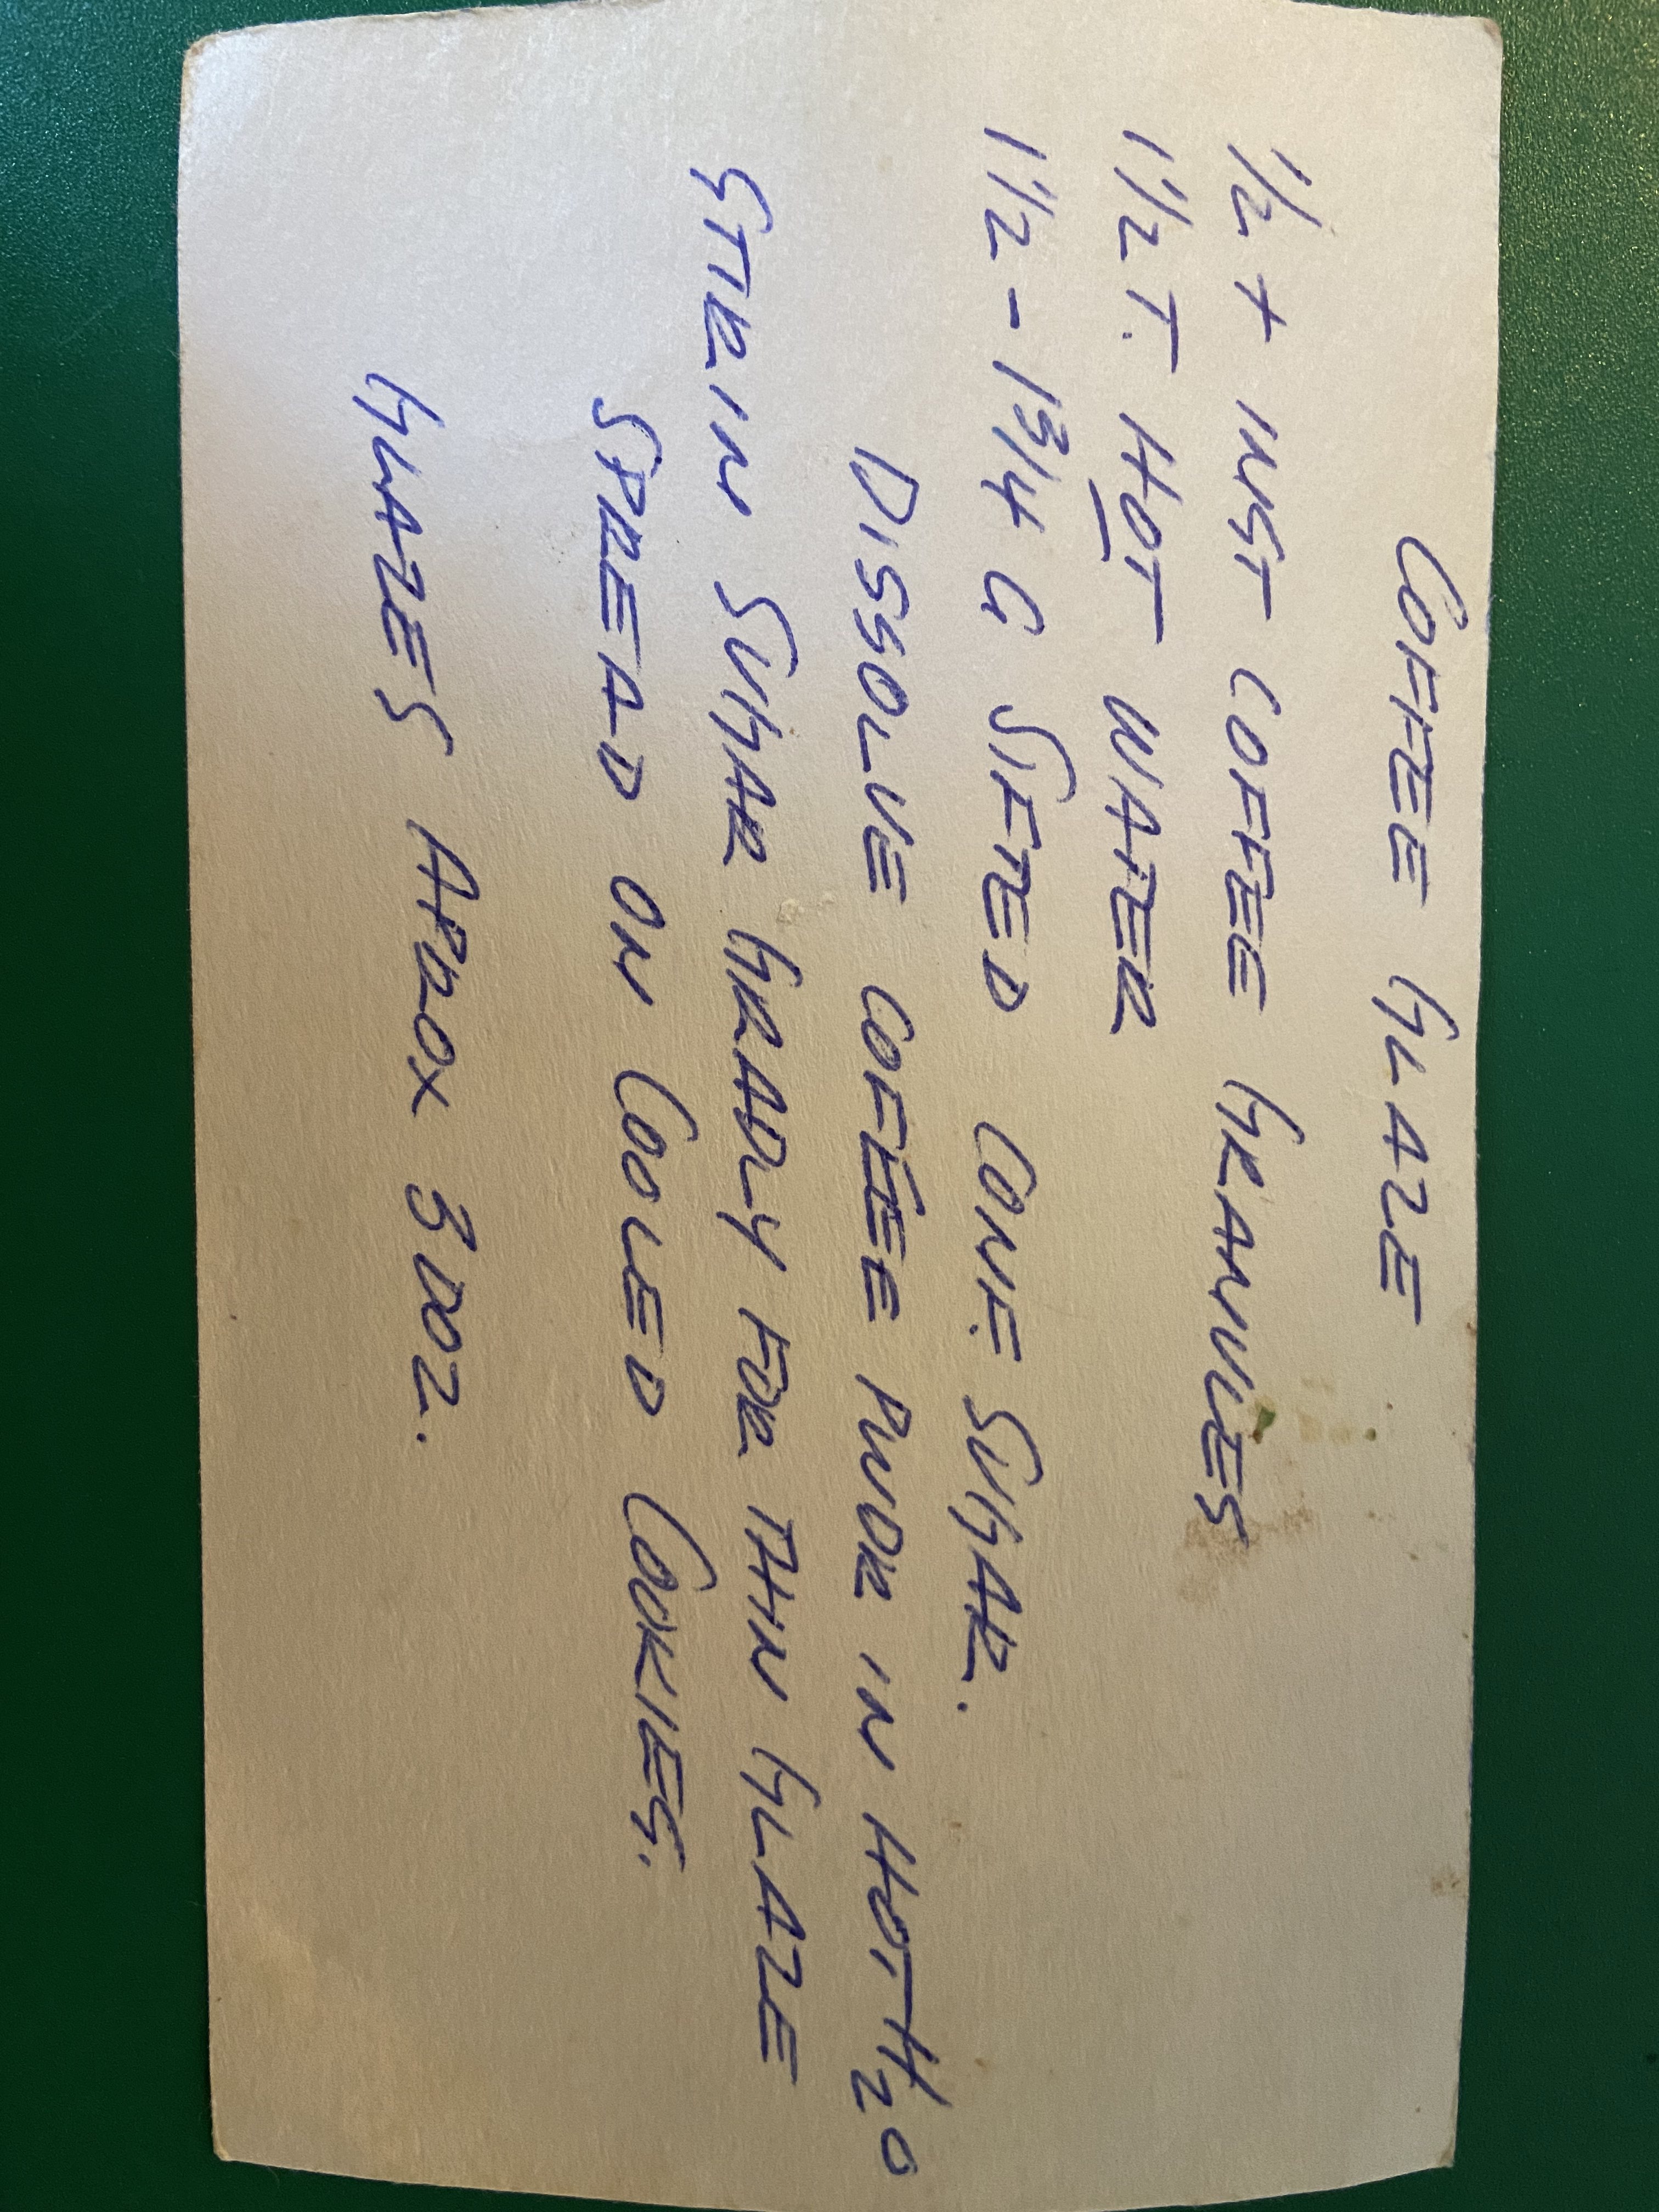 COFFEE GLAZE
1/2 t INST COFFEE GRANULES
1 1/2 T. HOT WATER
1 1/2 - 1 3/4 C SIFTED CONF. SUGAR.
DISSOLVE COFFEE PWDR IN HOT H2O
STIR IN SUGAR GRADLY FOR THIN GLAZE
SPREAD ON COOLED COOKIES.
GLAZES APROX 3 DOZ.